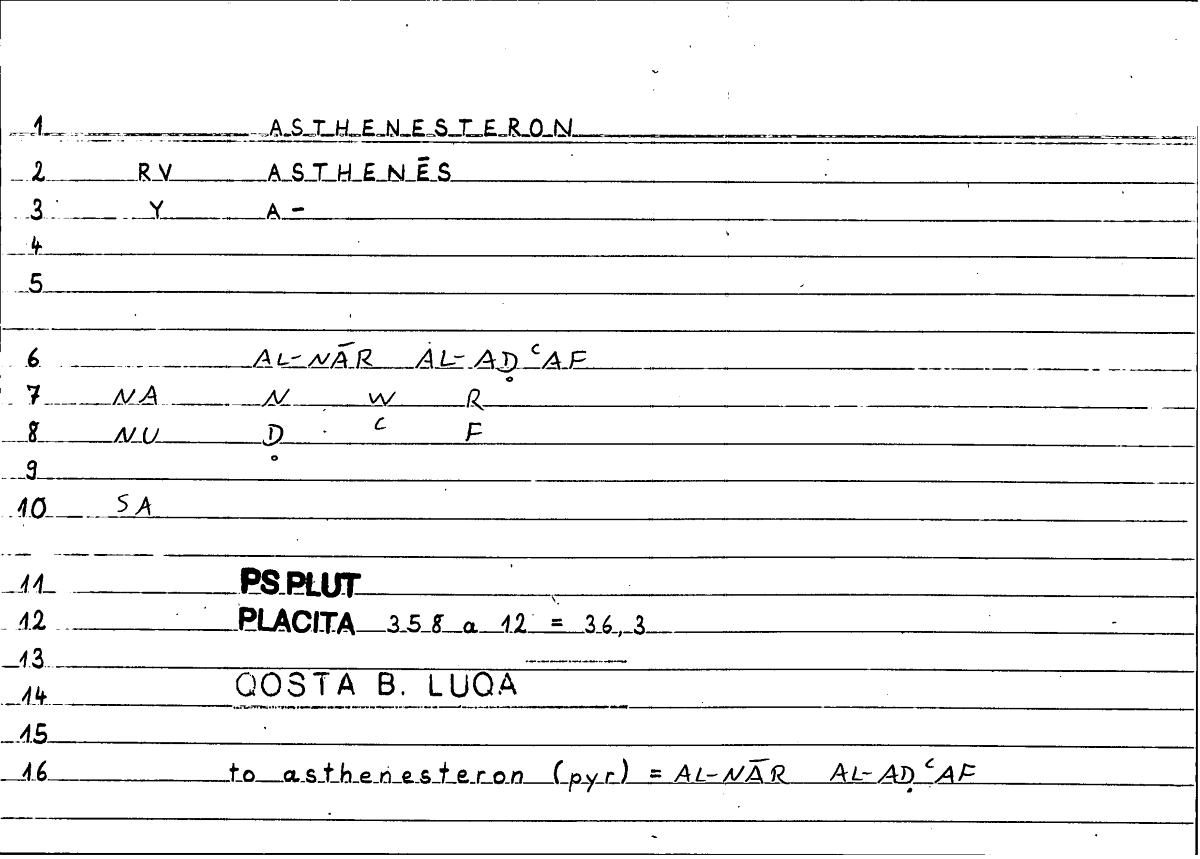 1 ASTHENESTERON
2 RV ASTHENĒS
3 Y A-
4
5
6 AL-NĀR AL-AḌʿAF
7 NA N W R
8 NU Ḍ ʿ F
9
10 SA
11 PS.PLUT
12 PLACITA 358 a 12 = 36,3
13
14 QOSTA B. LUQA
15
16 to asthenesteron (pyr) = AL-NĀR AL-AḌʿAF